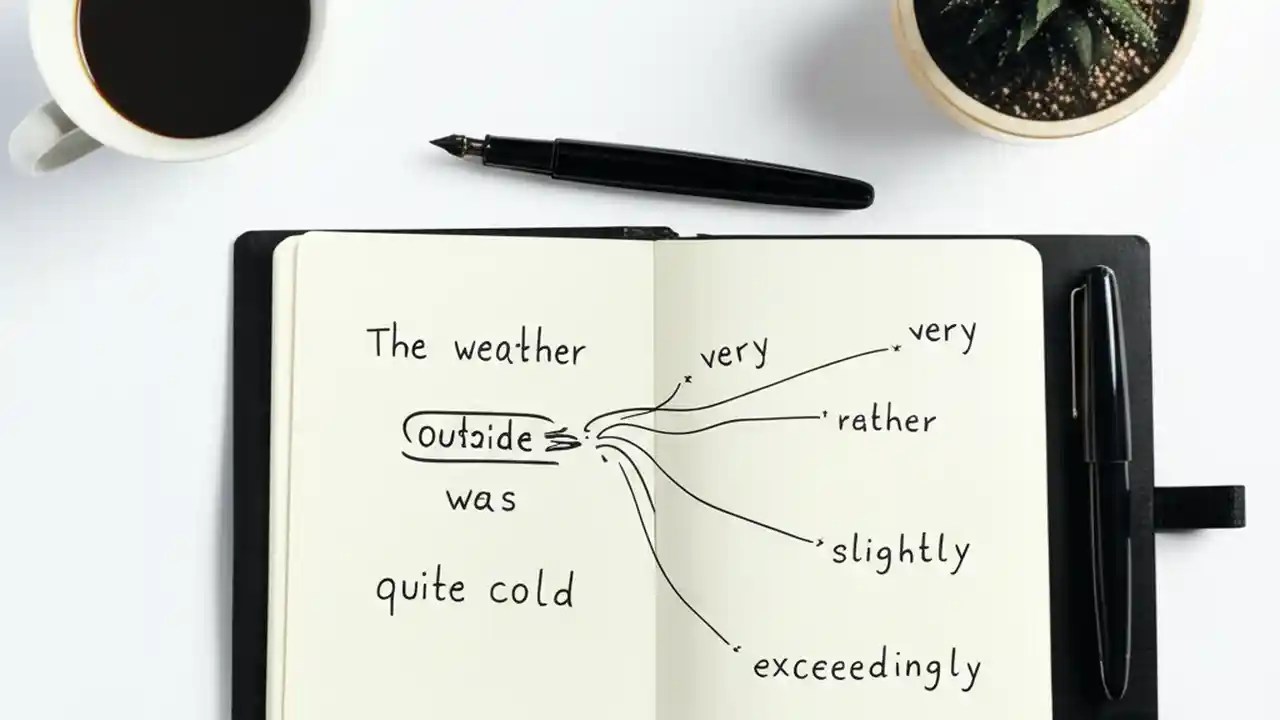 The weather
outside
was
quite cold
very
very
rather
slightly
exceeedingly